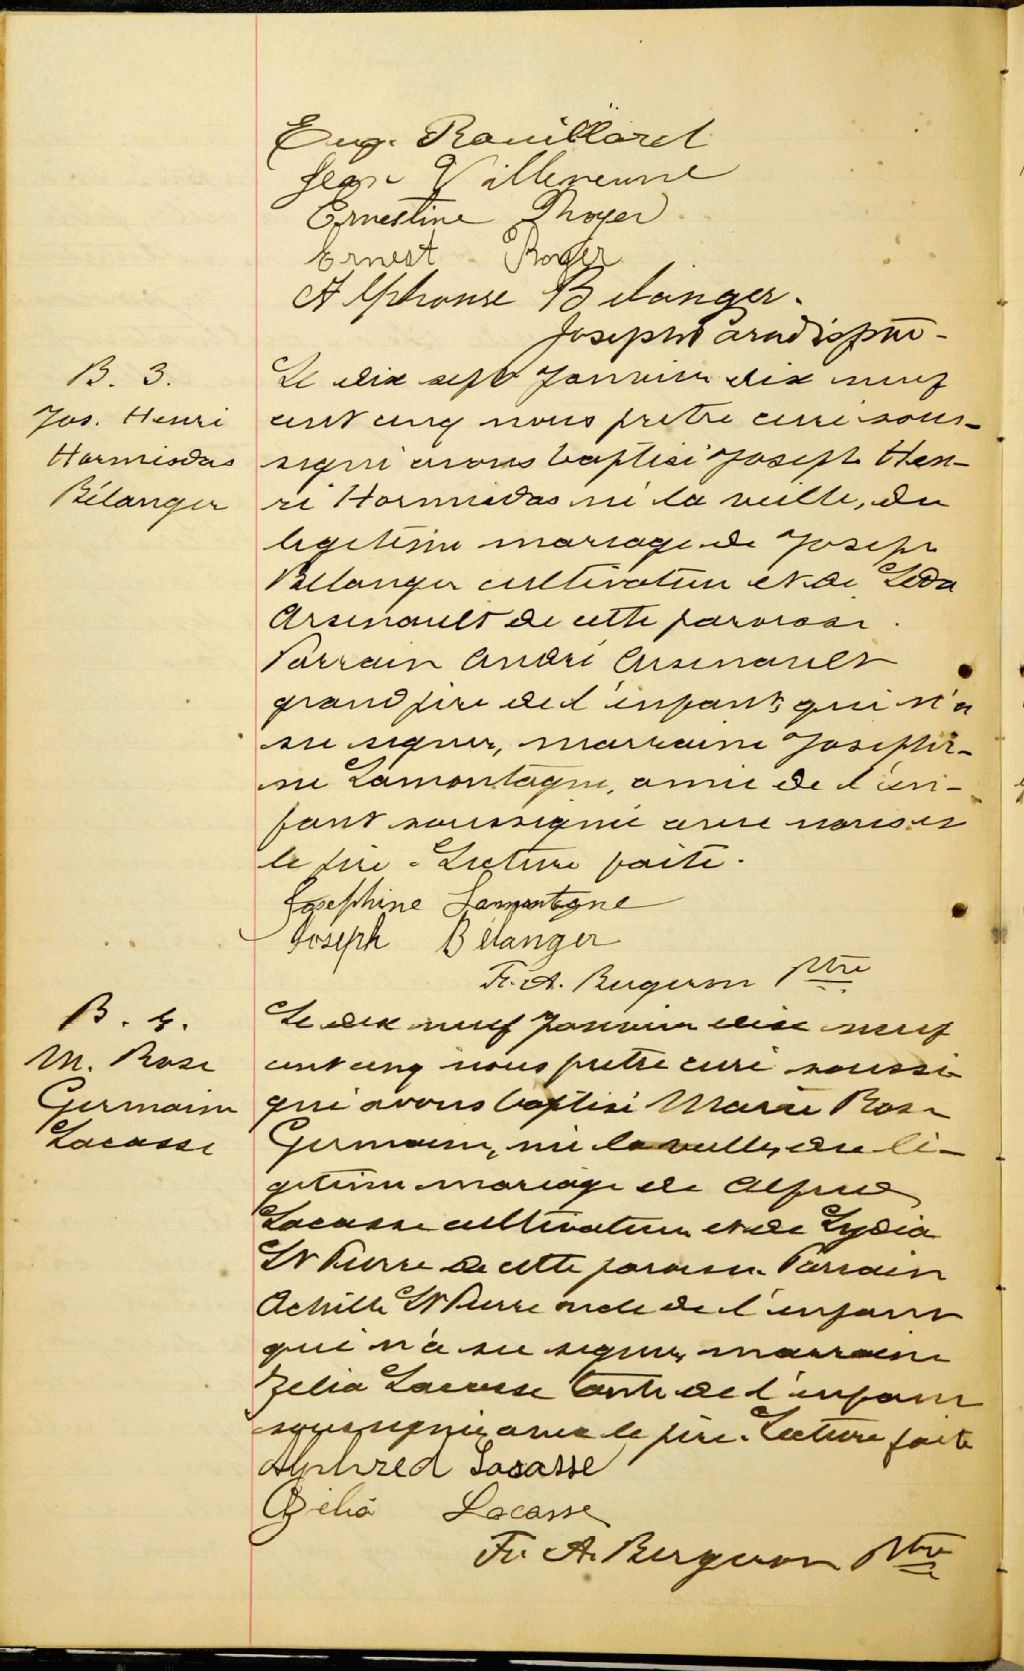 Eug. Rouillard
Jean Villeneuve
Ernestine Royer
Ernest Royer
Alphonse Belanger.
Joseph Paradis ptre -
B. 3.
Jos. Henri
Hormisdas
Bélanger
Le dix sept Janvier dix neuf
cent cinq nous prêtre curé sous-
signé avons baptisé Joseph Hen-
ri Hormisdas né la veille, du
légitime mariage de Joseph
Bélanger cultivateur et de Léda
Arsenault de cette paroisse.
Parrain André Arsenault
grand père de l'enfant qui n'a
su signer, marraine Joséphi-
ne Lamontagne, amie de l'en-
fant soussignée avec nous et
le père - Lecture faite.
Josephine Lamontagne
Joseph Bélanger
Fr. A. Bergeron Ptre
B. 4.
M. Rose
Germaine
Lacasse
Le dix neuf Janvier dix neuf
cent cinq nous prêtre curé soussi-
gné avons baptisé Marie Rose
Germaine, née la veille, du lé-
gitime mariage de Alfred
Lacasse cultivateur et de Lydia
St Pierre de cette paroisse. Parrain
Achille St Pierre oncle de l'enfant
qui n'a su signer, marraine
Zélia Lacasse tante de l'enfant
soussignée avec le père. Lecture faite
Alphred Lacasse
Ozélia Lacasse
Fr. A. Bergeron Ptre